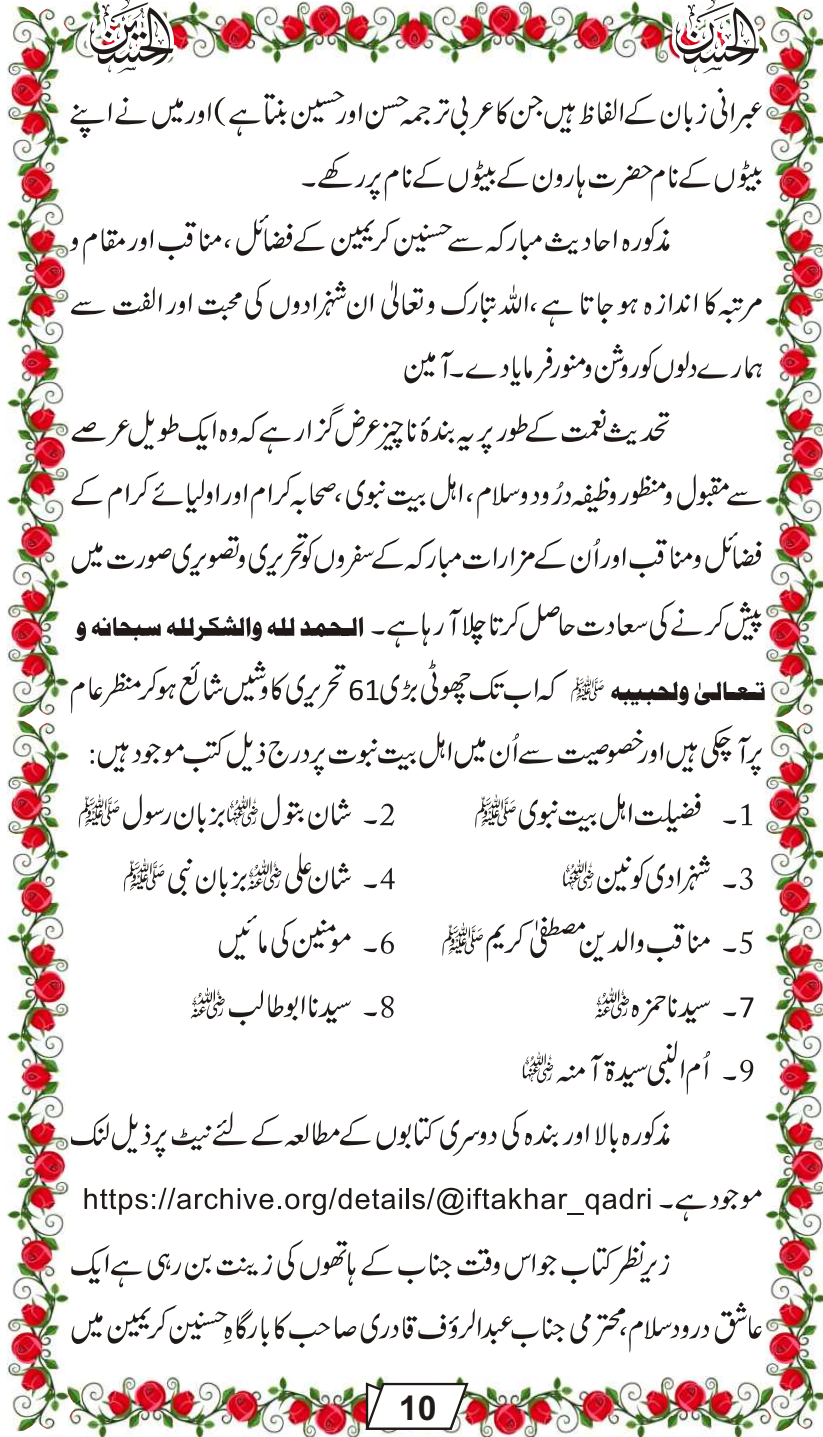 الحسن
الحسین
عبرانی زبان کے الفاظ ہیں جن کا عربی ترجمہ حسن اور حسین بنتا ہے) اور میں نے اپنے
بیٹوں کے نام حضرت ہارون کے بیٹوں کے نام پر رکھے۔
مذکورہ احادیث مبارکہ سے حسنین کریمین کے فضائل، مناقب اور مقام و
مرتبہ کا اندازہ ہو جاتا ہے، اللہ تبارک و تعالیٰ ان شہزادوں کی محبت اور الفت سے
ہمارے دلوں کو روشن ومنور فرما یادے۔ آمین
تحدیث نعمت کے طور پر یہ بندۂ ناچیز عرض گزار ہے کہ وہ ایک طویل عرصے
سے مقبول ومنظور وظیفہ درُود وسلام، اہل بیت نبوی، صحابہ کرام اور اولیائے کرام کے
فضائل ومناقب اور اُن کے مزارات مبارکہ کے سفروں کو تحریری وتصویری صورت میں
پیش کرنے کی سعادت حاصل کرتا چلا آ رہا ہے۔ الحمد لله والشكرلله سبحانه و
تعالىٰ ولحبيبه ﷺ کہ اب تک چھوٹی بڑی 61 تحریری کاوشیں شائع ہو کر منظر عام
پر آ چکی ہیں اور خصوصیت سے اُن میں اہل بیت نبوت پر درج ذیل کتب موجود ہیں:
1۔ فضیلت اہل بیت نبوی ﷺ 2۔ شان بتول رضی اللہ عنہا بزبان رسول ﷺ
3۔ شہزادی کونین رضی اللہ عنہا 4۔ شان علی رضی اللہ عنہ بزبان نبی ﷺ
5۔ مناقب والدین مصطفیٰ کریم ﷺ 6۔ مومنین کی مائیں
7۔ سیدنا حمزہ رضی اللہ عنہ 8۔ سیدنا ابوطالب رضی اللہ عنہ
9۔ اُم النبی سیدۃ آمنہ رضی اللہ عنہا
مذکورہ بالا اور بندہ کی دوسری کتابوں کے مطالعہ کے لئے نیٹ پر ذیل لنک
موجود ہے۔ https://archive.org/details/@iftakhar_qadri
زیر نظر کتاب جو اس وقت جناب کے ہاتھوں کی زینت بن رہی ہے ایک
عاشق درود سلام، محترمی جناب عبدالرؤف قادری صاحب کا بارگاہِ حسنین کریمین میں
10